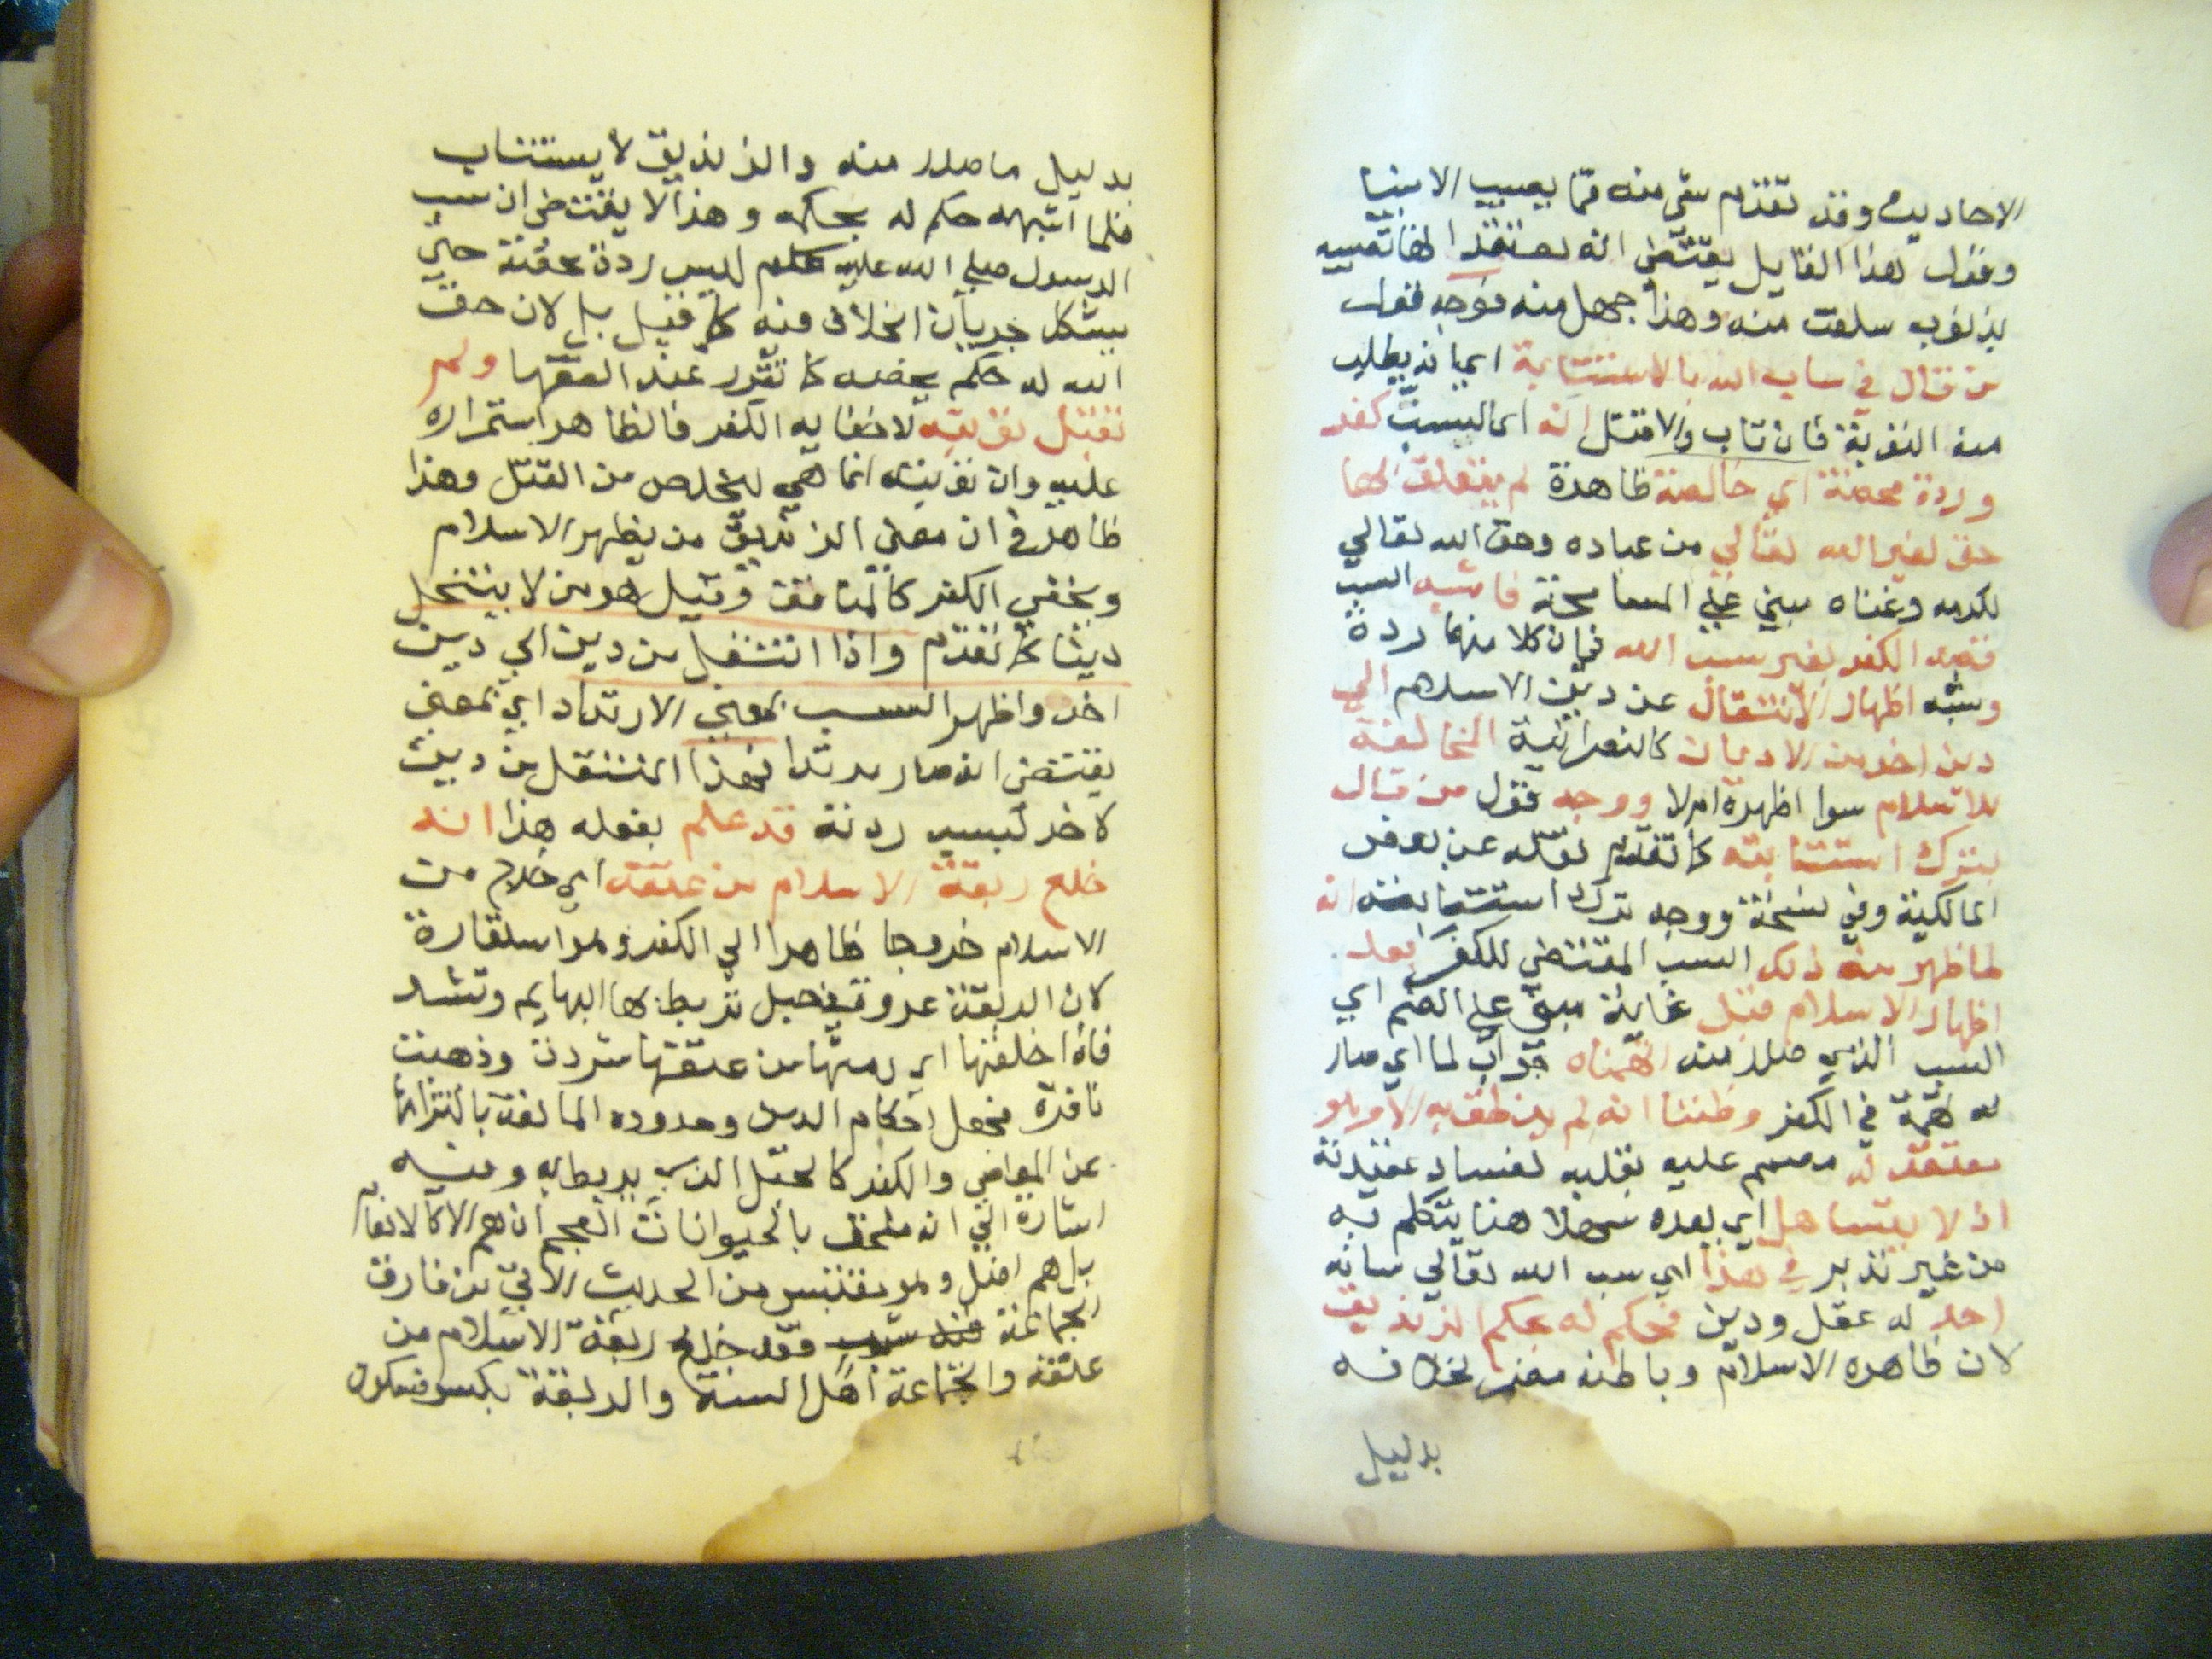 الاحاديث وقد تقدم شي منه فما يصيب الانبيا
وقول هذا القايل يقتضي انه لمعتقدا لها تصيبه
بذنوب سلفت منه وهذا جهل منه فوجه قول
من قال في ساب الله بالاستتابة اي بانه يطلب
منه التوبة فان تاب والا قتل انه اي السب كفر
وردة محضة اي خالصة ظاهرة لم يتعلق بها
حق لغير الله تعالي من عباده وحق الله تعالي
لكرمه وغناه مبني علي المسامحة فاشبه السب
قصد الكفر بغير سب الله فان كلا منهما ردة
وشبه اظهار الانتقال عن دين الاسلام الي
دين اخر من الاديان كالنصرانية المخالفة
للاسلام سوا اظهره ام لا ووجه قول من قال
بترك استتابته كما تقدم نقله عن بعض
المالكية وفي نسخة ووجه ترك استتابته انه
لما ظهر منه ذلك السب المقتضي للكفر بعد
اظهار الاسلام قبل غاية مبني علي الضم اي
السب الذي صدر منه اتهمناه جواب لما اي صار
له تهمة في الكفر وظننا انه لم ينطق به الا وهو
معتقد له مصمم عليه بقلبه لفساد عقيدته
اذ لا يتساهل اي يعده سهلا هنا يتكلم به
من غير تدبر في هذا اي سب الله تعالي شانه
احد له عقل ودين فحكم له بحكم الزنديق
لان ظاهره الاسلام وباطنه مضمر لخلافه
بدليل
بدليل ما صدر منه والزنديق لا يستتاب
فلما اشبهه حكم له بحكمه وهذا لا يقتضي ان سب
الرسول صلي الله عليه وسلم ليس ردة محضة حتي
يشكل جريان الخلاف فيه كما قيل بل لان حق
الله له حكم يخصه كما تقرر عند الفقها ولم
تقبل توبته لاخفايه الكفر فالظاهر استمراره
عليه وان توبته انما هي للتخلص من القتل وهذا
ظاهر في ان معني الزنديق من يظهر الاسلام
ويخفي الكفر كالمنافق وقيل هو من لا ينتحل
دينا كما تقدم واذا انتقل من دين الي دين
اخر واظهر السب بمعني الارتداد اي بمعني
يقتضي انه صار مرتدا فهذا المنتقل من دين
لاخر بسبب ردته قد علم بفعله هذا انه
خلع ربقة الاسلام من عنقه اي خرج من
الاسلام خروجا ظاهرا الي الكفر وهو استعارة
لان الربقة عروة في حبل تربط بها البهايم وتشد
فاذا خلعتها اي رمتها من عنقها شردت وذهبت
نافرة فجعل احكام الدين وحدوده المانعة بالتزامها
عن المعاصي والكفر كالحبل الذي يربط به وفيه
اشارة الي انه ملحق بالحيوانات العجم ان هم الا كالانعام
بل هم اضل وهو مقتبس من الحديث الاتي من فارق
الجماعة قيد شبر فقد خلع ربقة الاسلام من
عنقه والجماعة اهل السنة والربقة بكسر فسكون